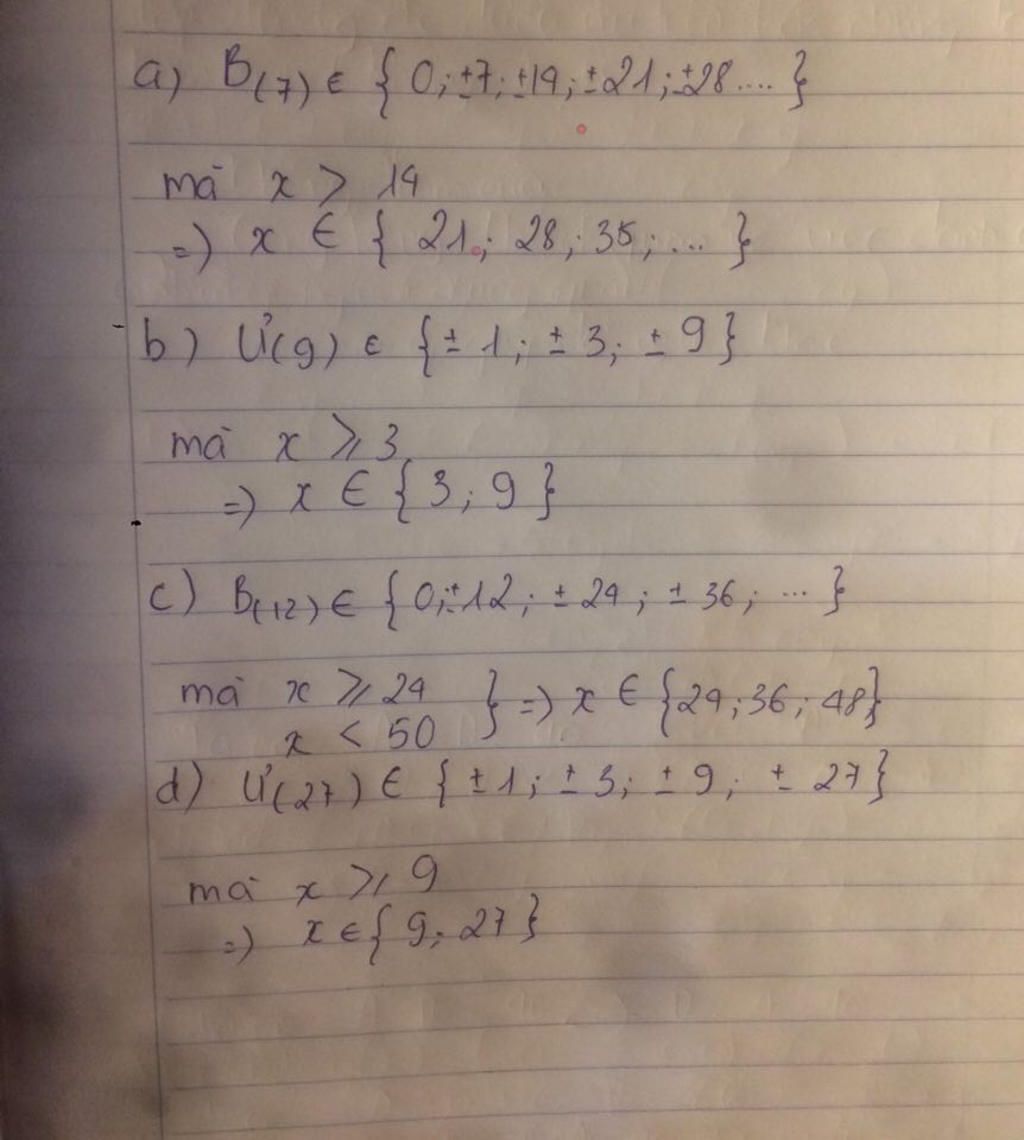 a) B(7) ∈ { 0; ±7; ±14; ±21; ±28.... }
mà x > 14
=) x ∈ { 21; 28; 35; ... }
b) Ư(9) ∈ { ± 1; ± 3; ± 9 }
mà x ⩾ 3
=) x ∈ { 3; 9 }
c) B(12) ∈ { 0; ±12; ± 24; ± 36; ... }
mà x ⩾ 24 } =) x ∈ {24; 36; 48}
x < 50
d) Ư(27) ∈ { ±1; ± 3; ± 9; ± 27 }
mà x ⩾ 9
=) x ∈ { 9; 27 }